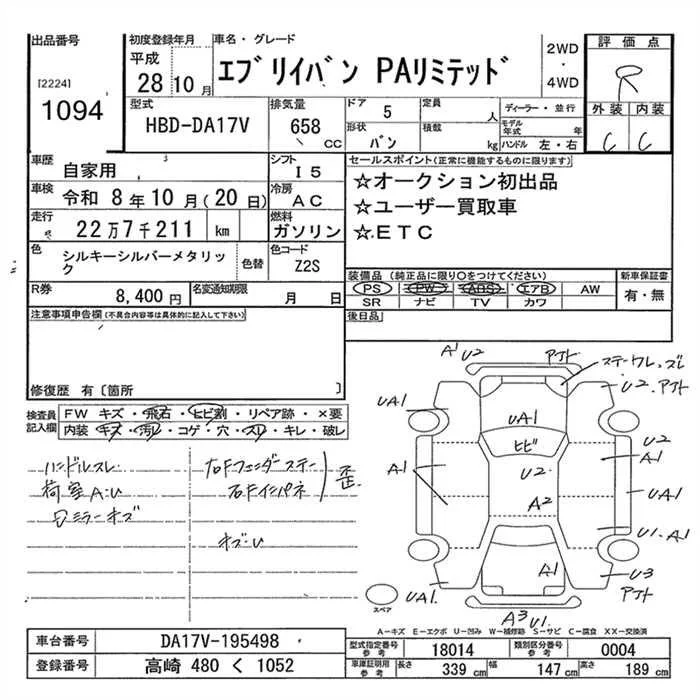 出品番号
[2224]
1094
初度登録年月
平成
28 10 月
車名・グレード
エブリイバン PAリミテッド
2WD
・
4WD
評価点
R
外装 内装
C C
型式
HBD-DA17V
排気量
658 CC
ドア 5
形状 バン
定員 人
積載 kg
ディーラー・並行
モデル年式 年
ハンドル 左・右
車歴
自家用
シフト
I5
車検
令和 8年10月(20日)
冷房
AC
走行
22万7千211 km
燃料
ガソリン
色
シルキーシルバーメタリック
色替
色コード
Z2S
R券
8,400 円
名変通知期限
月 日
セールスポイント(正常に機能するものに限ります)
☆オークション初出品
☆ユーザー買取車
☆ETC
装備品 (純正品に限り○をつけてください)
PS PW ABS エアB AW
SR ナビ TV カワ
新車保証書
有・無
後日品
注意事項申告欄(不具合内容等は具体的に記入して下さい)
修復歴 有〔箇所 〕
検査員記入欄
FW キズ・飛石・ヒビ割・リペア跡・×要
内装 キズ・汚レ・コゲ・穴・スレ・キレ・破レ
ハンドルスレ
荷室A・U
右Fフェンダーステー
右Fインパネ
歪
A1 U2 アクト
U2.アクト
UA1
UA1
ヒビ
U2
A2
A1
U2
A1
UA1
U1.A1
A1
U3
アクト
UA1.
A3 U1
スペア
A-キズ E-エクボ U-凹み W-補修跡 S-サビ C-腐食 XX-交換済
車台番号
DA17V-195498
登録番号
高崎 480 く 1052
型式指定番号
参考
18014
類別区分番号
参考
0004
車庫証明用
参考
長さ 339 cm
幅 147 cm
高さ 189 cm